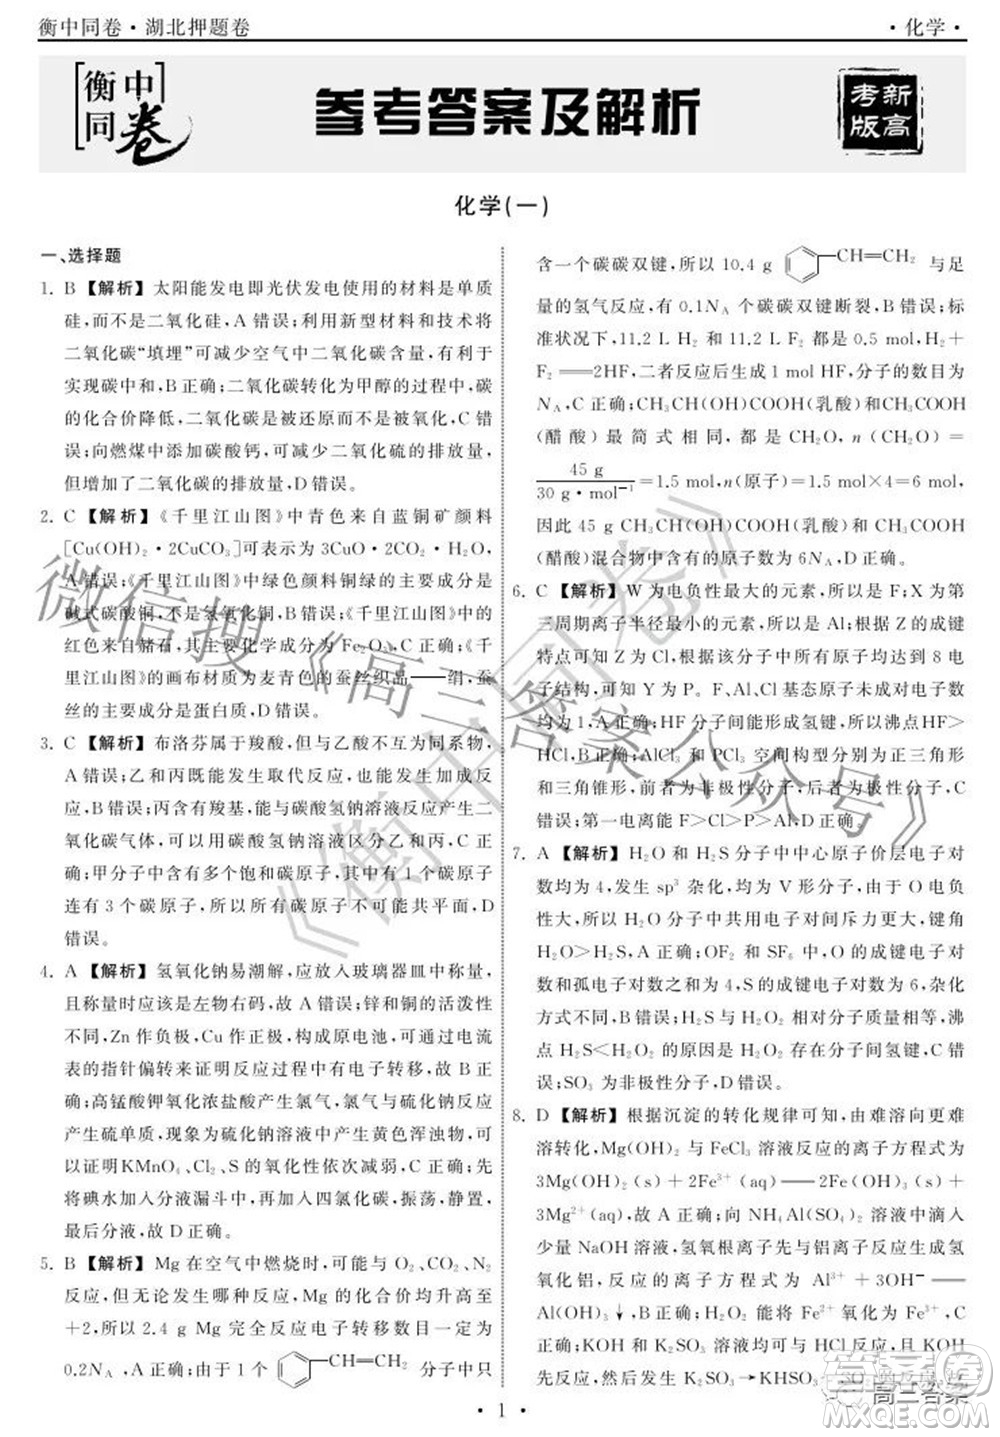 衡中同卷·湖北押题卷
·化学·
衡中同卷
参考答案及解析
新高考版
化学(一)
一、选择题
1. B 【解析】太阳能发电即光伏发电使用的材料是单质
硅,而不是二氧化硅,A错误;利用新型材料和技术将
二氧化碳“填埋”可减少空气中二氧化碳含量,有利于
实现碳中和,B正确;二氧化碳转化为甲醇的过程中,碳
的化合价降低,二氧化碳是被还原而不是被氧化,C错
误;向燃煤中添加碳酸钙,可减少二氧化硫的排放量,
但增加了二氧化碳的排放量,D错误。
2. C 【解析】《千里江山图》中青色来自蓝铜矿颜料
[Cu(OH)₂·2CuCO₃]可表示为3CuO·2CO₂·H₂O,
A错误;《千里江山图》中绿色颜料铜绿的主要成分是
碱式碳酸铜,不是氢氧化铜,B错误;《千里江山图》中的
红色来自赭石,其主要化学成分为Fe₂O₃,C正确;《千
里江山图》的画布材质为麦青色的蚕丝织品——绢,蚕
丝的主要成分是蛋白质,D错误。
3. C 【解析】布洛芬属于羧酸,但与乙酸不互为同系物,A
错误;乙和丙既能发生取代反应,也能发生加成反
应,B错误;丙含有羧基,能与碳酸氢钠溶液反应产生二
氧化碳气体,可以用碳酸氢钠溶液区分乙和丙,C正
确;甲分子中含有多个饱和碳原子,其中有1个碳原子
连有3个碳原子,所以碳原子不可能共平面,D
错误。
4. A 【解析】氢氧化钠易潮解,应放入玻璃器皿中称量,
且称量时应该是左物右码,故A错误;锌和铜的活泼性
不同,Zn作负极,Cu作正极,构成原电池,可通过电流
表的指针偏转来证明反应过程中有电子转移,故B正
确;高锰酸钾氧化浓盐酸产生氯气,氯气与硫化钠反应
生成硫单质,现象为硫化钠溶液中产生黄色浑浊,可
证明KMnO₄、Cl₂、S的氧化性依次减弱,故C正确;
将碘水加入分液漏斗中,再加入四氯化碳,振荡,静置,
最后分液,故D正确。
5. B 【解析】Mg在空气中燃烧时,可能与O₂、CO₂、N₂
反应,但无论发生哪种反应,Mg的化合价均升高至
+2,所以2.4 g Mg完全反应电子转移数目一定为
0.2N_A,A正确;由于1个 CH=CH₂ 分子中只
含一个碳碳双键,所以10.4 g CH=CH₂ 与足
量的氢气反应,有0.1N_A个碳碳双键断裂,B错误;标
准状况下,11.2 L H₂和11.2 L F₂都是0.5 mol,H₂+
F₂══2HF,二者反应后生成1 mol HF,分子的数目为
N_A,C正确;CH₃CH(OH)COOH(乳酸)和CH₃COOH
(醋酸)最简式相同,都是CH₂O,n(CH₂O)=
45 g/30 g·mol⁻¹=1.5 mol,n(原子)=1.5 mol×4=6 mol,
因此45 g CH₃CH(OH)COOH(乳酸)和CH₃COOH
(醋酸)混合物中含有的原子数为6N_A,D正确。
6. C 【解析】W为电负性最大的元素,所以是F;X为第
三周期离子半径最小的元素,所以是Al;根据Z的成键
特点可知Z为Cl,根据该分子中所有原子均达8电
子结构,可知Y为P。Al、Cl基态原子未成对电子数均
为1,A正确;HF分子间能形成氢键,所以沸点HF>
HCl,B正确;AlCl₃和PCl₃空间构型分别为正三角形
和三角锥形,前者为非极性分子,后者为极性分子,C错
误;第一电离能F>Cl>P>Al,D正确。
7. A 【解析】H₂O和H₂S分子中中心原子价层电子对
数均为4,发生sp³杂化,均为V形分子,由于O电负
性大,所以H₂O分子中共用电子对间斥力更大,键角
H₂O>H₂S,A正确;SO₂和SF₆分子中的成键电子对
数和孤电子对数之和分别为2+1=3、6+0=6,杂化
方式不同,B错误;H₂S与H₂O₂相对分子质量相等,沸
点H₂S<H₂O₂的原因是H₂O₂分子间有氢键,C错
误;SO₃为非极性分子,D错误。
8. D 【解析】根据沉淀的转化规律可知,由难溶向更难
溶转化,Mg(OH)₂与FeCl₃溶液反应的离子方程式为
3Mg(OH)₂(s)+2Fe³⁺(aq)══2Fe(OH)₃(s)+
3Mg²⁺(aq),A正确;向NH₄Al(SO₄)₂溶液中滴入
少量NaOH溶液,氢氧根离子与铝离子反应生成氢
氧化铝,反应的离子方程式为Al³⁺+3OH⁻══
Al(OH)₃↓,B正确;H₂O₂能将Fe²⁺氧化为Fe³⁺,C
正确;KOH和K₂SO₃溶液均可与HCl反应,先
KOH反应,然后发生K₂SO₃→KHSO₃→SO₂
·1·
微信搜《高三答案公众号》
《衡中同卷》
答案圈
高三答案
MXQE.COM